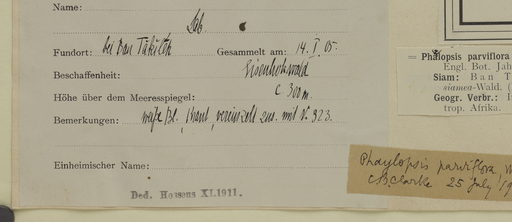 Name:
Lab
Fundort: bei Ban Tākilēk Gesammelt am: 14. I. 05.
Beschaffenheit: Eisenholzwald
Höhe über dem Meeresspiegel: c 300 m.
Bemerkungen: weiße Bl., Staud, vereinzelt zus. mit N. 323.
Einheimischer Name:
Ded. Hosseus XI.1911.
= Phalopsis parviflora
Engl. Bot. Jah
Siam: Ban T
siamea-Wald. (
Geogr. Verbr.: I
trop. Afrika.
Phaylopsis parviflora, W
C.B. Clarke 25 July 19